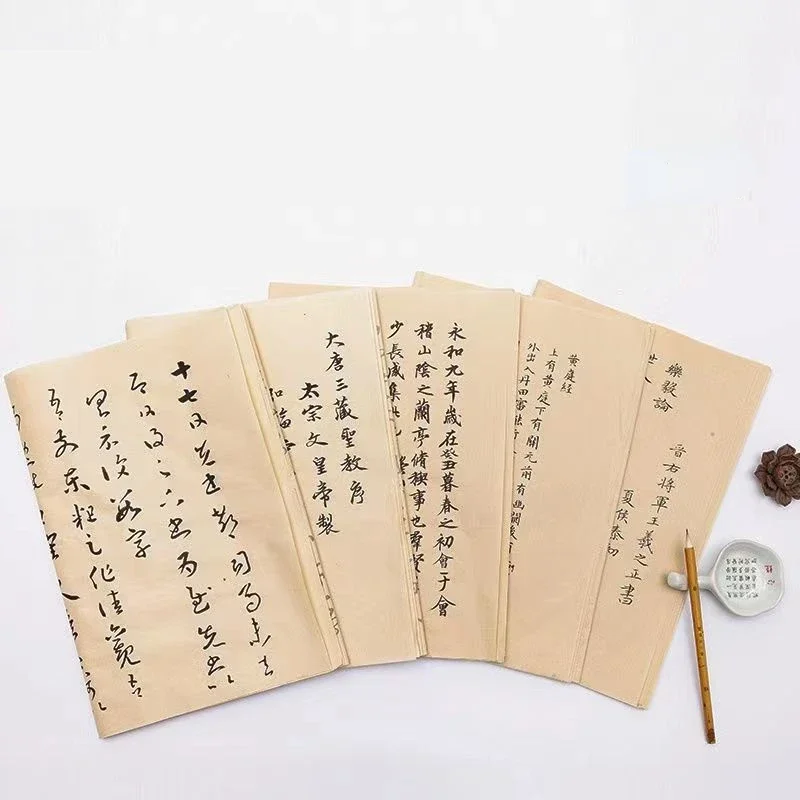 十七日先書郗司馬未去
即日得足下書為慰先書以
具示復數字
吾前東粗足作佳觀吾
大唐三藏聖教序
太宗文皇帝製
永和九年歲在癸丑暮春之初會于會
稽山陰之蘭亭脩稧事也羣賢
少長咸集此
黃庭經
上有黃庭下有關元前有幽闕後有
外出入丹田審能行
樂毅論
晉右將軍王羲之正書
夏侯泰初
世人